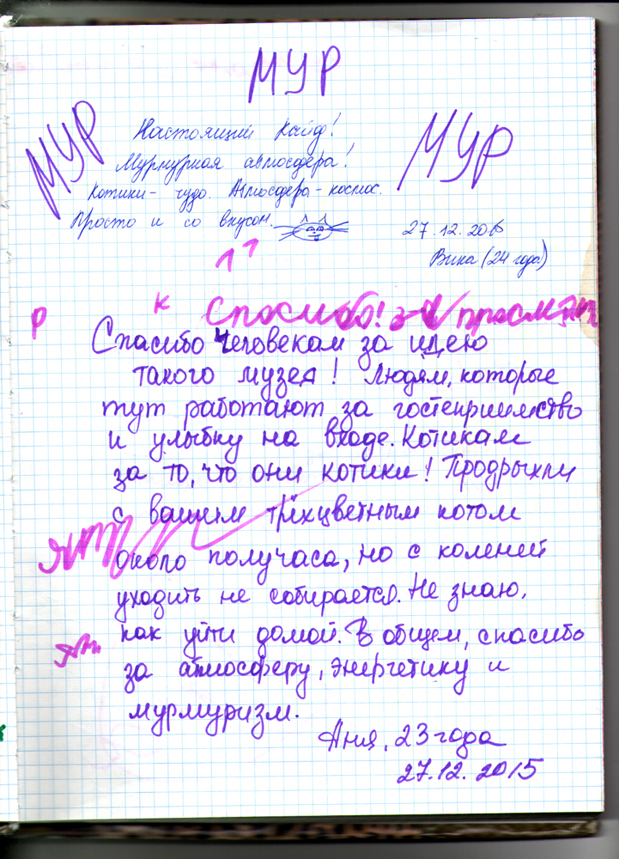 МУР
МУР
МУР
Настоящий кайф!
Мурмурная атмосфера!
Котики - чудо. Атмосфера - космос.
Просто и со вкусом.
27.12.2015
Вика (24 года)
Р
к Спосибо! за
Спасибо человекам за идею
такого музея! Людям, которые
тут работают за гостеприимство
и улыбку на входе. Котикам
за то, что они котики! Продрыхли
с вашим трёхцветным котом
около получаса, но с коленей
уходить не собирается. Не знаю,
как уйти домой. В общем, спасибо
за атмосферу, энергетику и
мурмуризм.
Аня, 23 года
27.12.2015